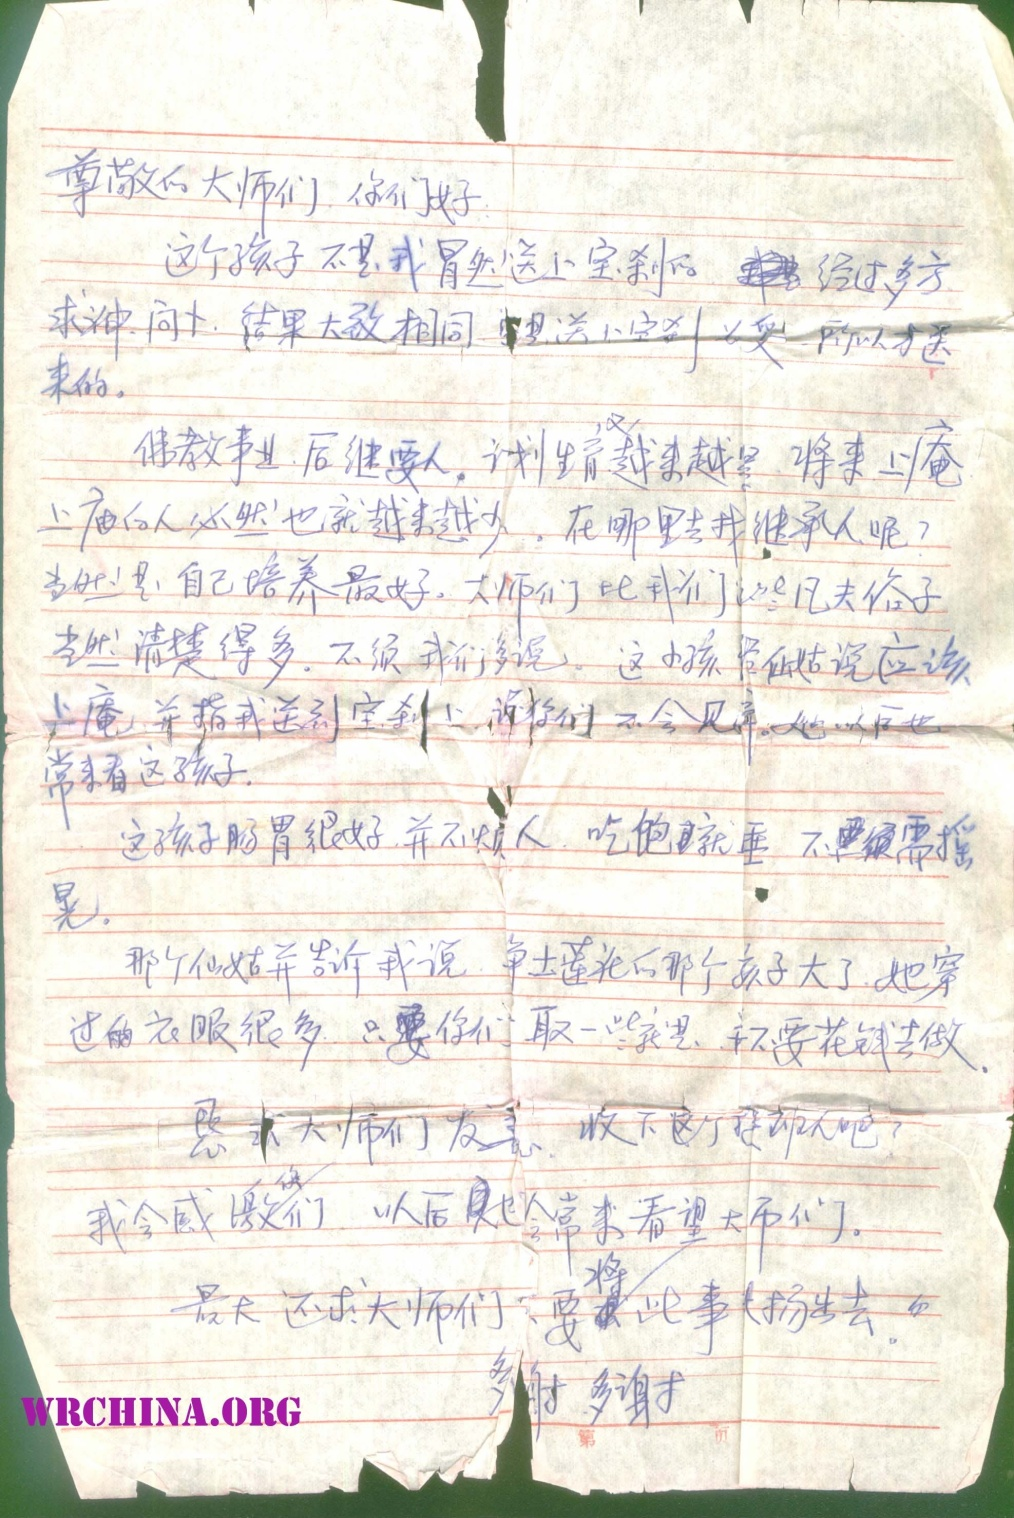 尊敬的大师们 你们好
这个孩子不是我冒然送上宝刹的 经过多方
求神问卜 结果大致相同 送上宝刹 所以才送
来的。
佛教事业 后继要人。计划生育又越来越 将来上庵
上庙的人必然也就越来越少。在哪里去找继承人呢?
当然是自己培养最好。大师们比我们这些凡夫俗子
当然清楚得多。不须我们多说。这小孩 仙姑说应该
上庵 并指我送到宝刹上 说你们不会见弃。她以后也
常来看这孩子。
这孩子肠胃很好 并不烦人 吃饱就睡 不需摇
晃。
那个仙姑并告诉我说 净土莲花的那个孩子大了 她穿
过的衣服很多 只要你们取一些就是 不要花钱去做。
恳求大师们发 收下这个接班人吧?
我会感激你们 以后也会常来看望大师们。
最大还求大师们不要将此事 扬出去。
多谢 多谢
第 页
WRCHINA.ORG